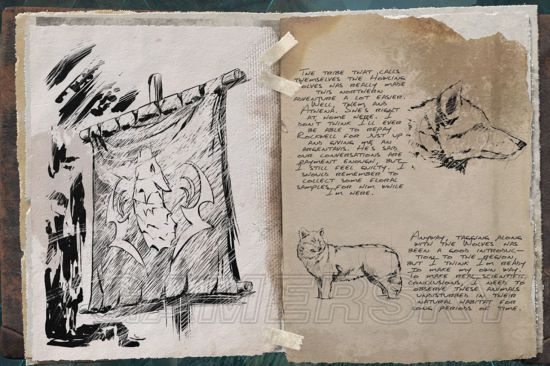 The tribe that calls
themselves the Howling
Wolves has really made
this northern
adventure a lot easier.
Well, them and
Athena. She's right
at home here. I
don't think I'll ever
be able to repay
Rockwell for just up
and giving me an
Argentavis. He said
our conversations are
payment enough, but
I still feel guilty. I
should remember to
collect some floral
samples for him while
I'm here.
Anyway, tagging along
with the Wolves has
been a good introduc-
tion to the region,
but I think I'm ready
to make my own way.
To make real scientific
conclusions, I need to
observe these animals
undisturbed in their
natural habitat for
long periods of time.